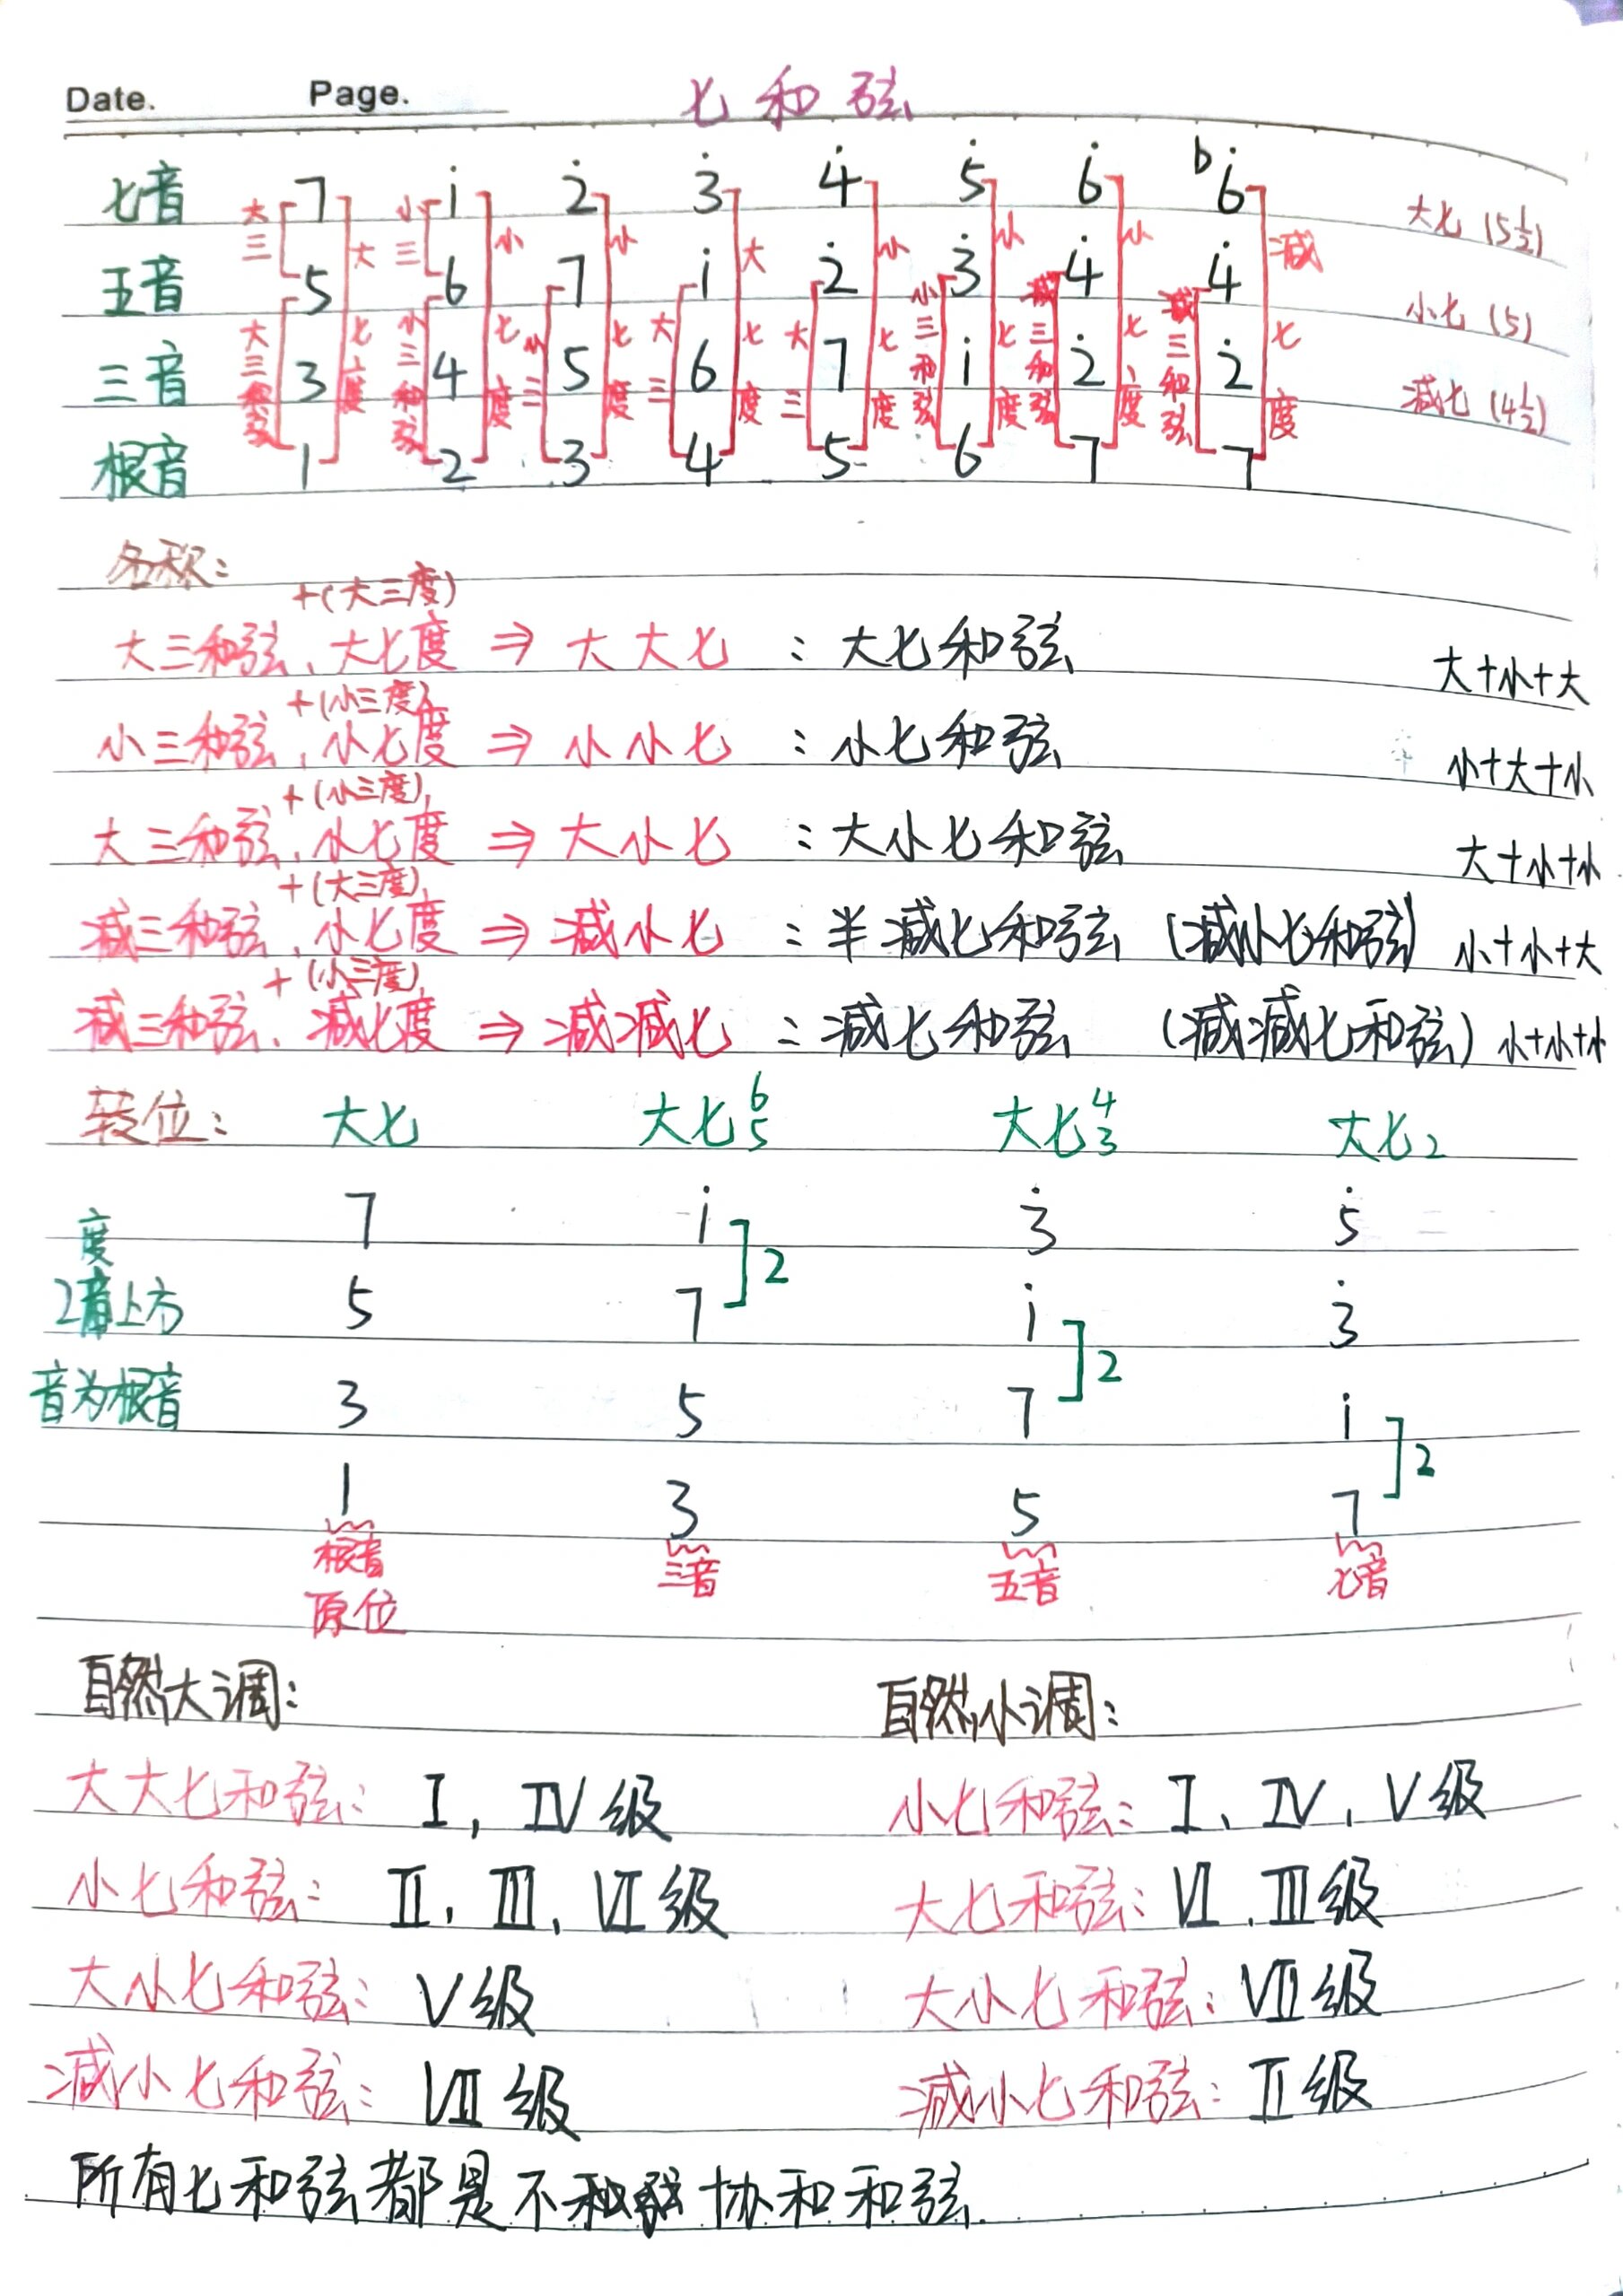 Date. Page. 七和弦
七音 7 i 2̇ 3̇ 4̇ 5̇ 6̇ b6̇ 大七 (5½)
五音 5 6 7 i 2̇ 3̇ 4̇ 4̇ 小七 (5)
三音 3 4 5 6 7 i 2̇ 2̇ 减七 (4½)
根音 1 2 3 4 5 6 7 7
大三 大三和弦 大七度
小三 小三和弦 小七度
小三 小七度
大三 大七度
大三 小七度
小三和弦 小七度
减三和弦 小七度
减三和弦 减七度
名称:
+(大三度)
大三和弦、大七度 ⇒ 大大七 : 大七和弦 大+小+大
+(小三度)
小三和弦、小七度 ⇒ 小小七 : 小七和弦 小+大+小
+(小三度)
大三和弦、小七度 ⇒ 大小七 : 大小七和弦 大+小+小
+(大三度)
减三和弦、小七度 ⇒ 减小七 : 半减七和弦 (减小七和弦) 小+小+大
+(小三度)
减三和弦、减七度 ⇒ 减减七 : 减七和弦 (减减七和弦) 小+小+小
转位: 大七 大七6 5 大七4 3 大七2
7 i 3̇ 5̇
度 ]2
2音上方 5 7 i 3̇
]2
音为根音 3 5 7 i
]2
1 3 5 7
根音 三音 五音 七音
原位
自然大调: 自然小调:
大大七和弦: Ⅰ, Ⅳ级 小七和弦: Ⅰ、Ⅳ、Ⅴ级
小七和弦: Ⅱ、Ⅲ、Ⅵ级 大七和弦: Ⅵ、Ⅲ级
大小七和弦: Ⅴ级 大小七和弦: Ⅶ级
减小七和弦: Ⅶ级 减小七和弦: Ⅱ级
所有七和弦都是不协和和弦.